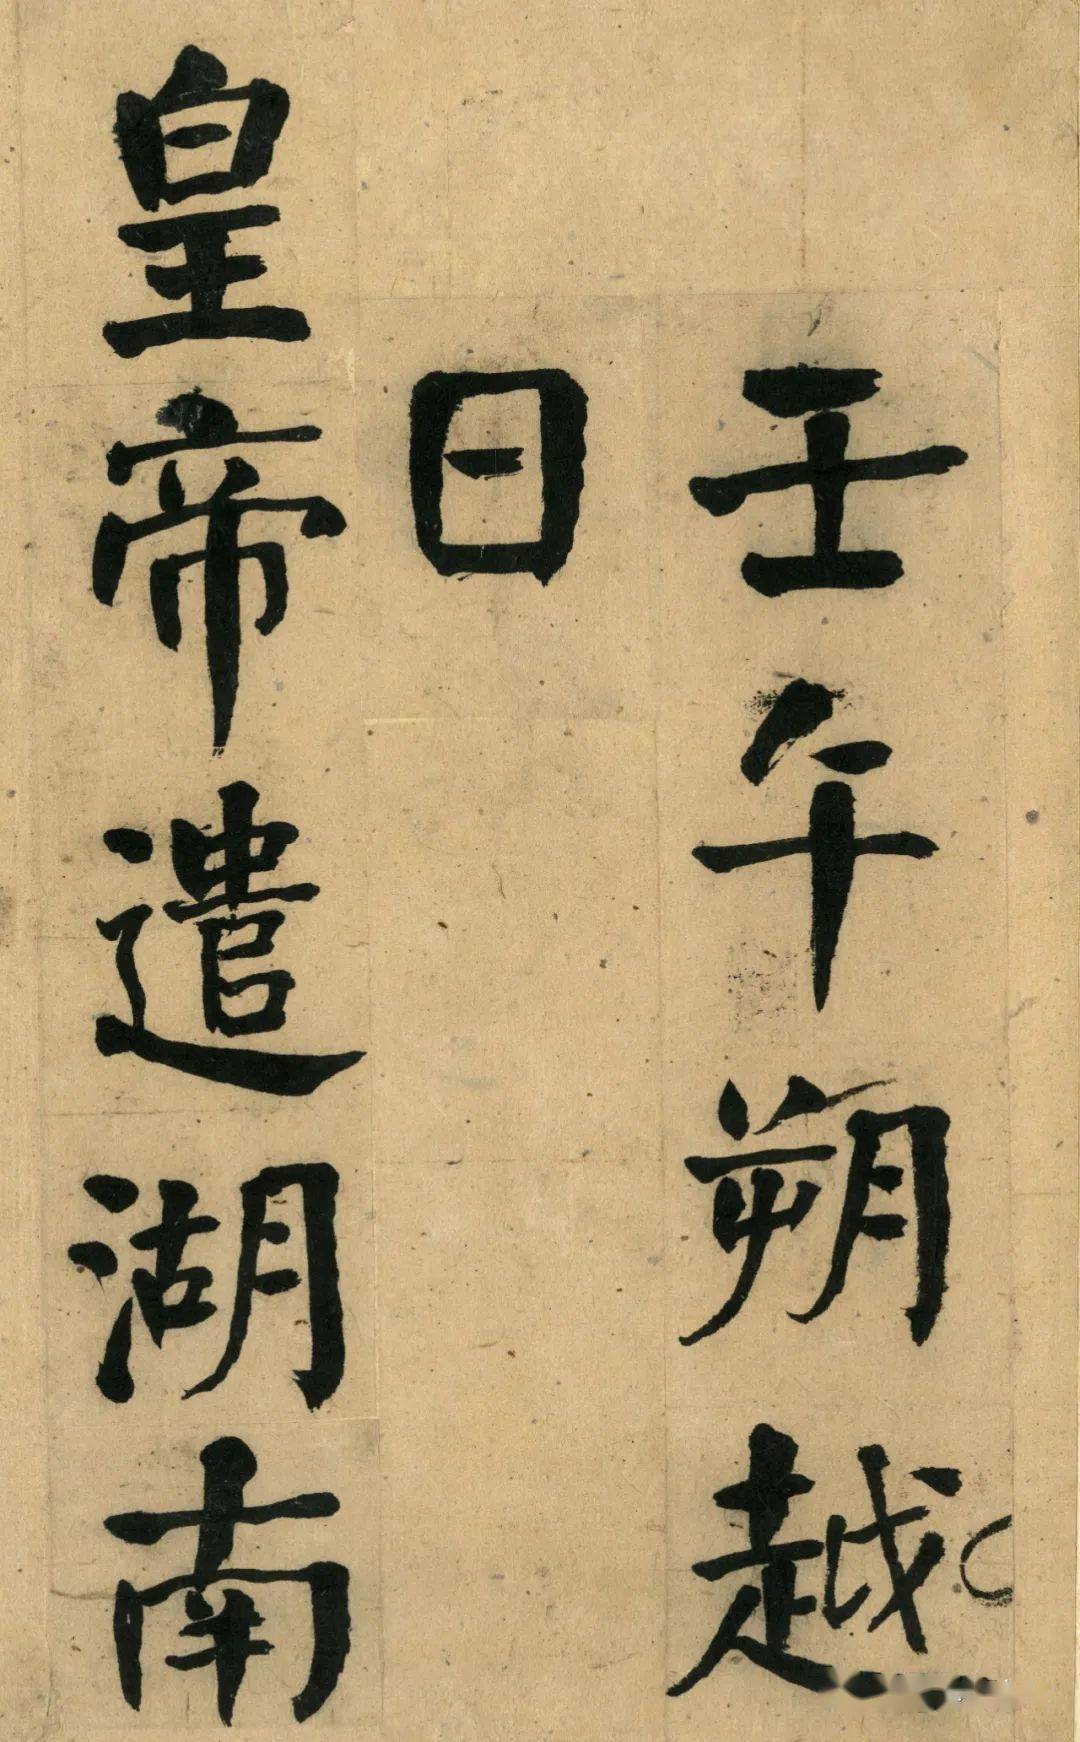 壬午朔越
日
皇帝遣湖南